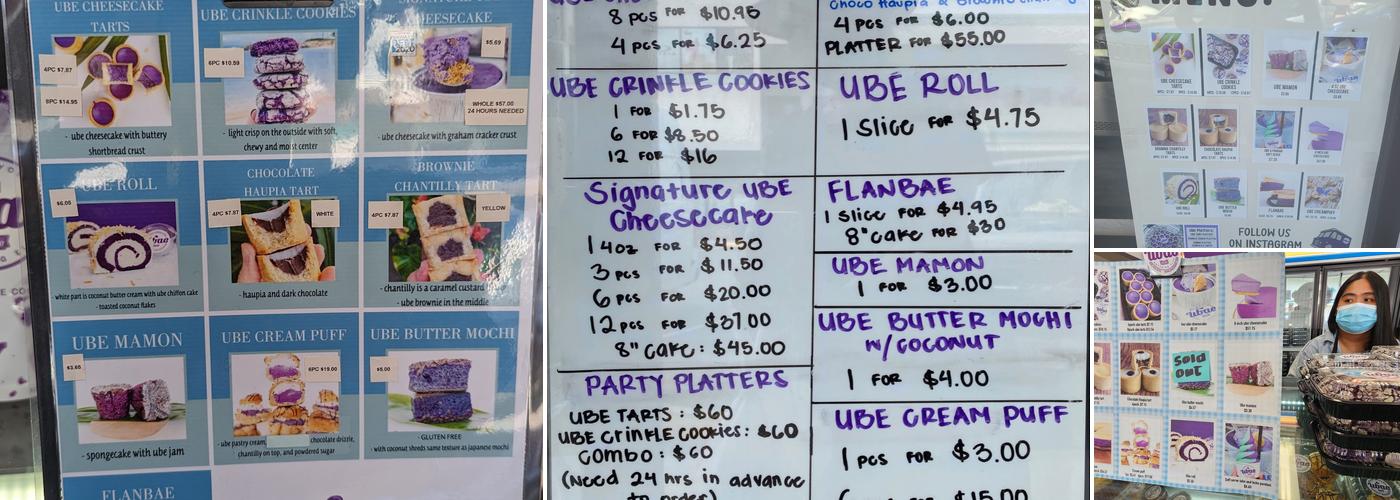 UBE CHEESECAKE
TARTS
4PC $7.87
8PC $14.95
- ube cheesecake with buttery
shortbread crust
UBE CRINKLE COOKIES
6PC $10.59
- light crisp on the outside with soft,
chewy and moist center
SIGNATURE UBE
CHEESECAKE
$5.69
WHOLE $57.00
24 HOURS NEEDED
- ube cheesecake with graham cracker crust
UBE ROLL
$6.05
white part is coconut butter cream with ube chiffon cake
- toasted coconut flakes
CHOCOLATE
HAUPIA TART
4PC $7.87
WHITE
- haupia and dark chocolate
BROWNIE
CHANTILLY TART
4PC $7.87
YELLOW
- chantilly is a caramel custard
- ube brownie in the middle
UBE MAMON
$3.65
- spongecake with ube jam
UBE CREAM PUFF
6PC $19.00
- ube pastry cream,
chocolate drizzle,
chantilly on top, and powdered sugar
UBE BUTTER MOCHI
$5.00
- GLUTEN FREE
- with coconut shreds same texture as japanese mochi
FLANBAE
8 pcs FOR $10.95
4 pcs FOR $6.25
UBE CRINKLE COOKIES
1 FOR $1.75
6 FOR $8.50
12 FOR $16
Signature UBE
Cheesecake
1 4oz FOR $4.50
3 pcs FOR $11.50
6 pcs FOR $20.00
12 pcs FOR $37.00
8" cake: $45.00
PARTY PLATTERS
UBE TARTS: $60
UBE Crinkle Cookies: $60
Combo: $60
(Need 24 hrs in advance
to order)
Choco Haupia & Brownie Chantilly
4 pcs FOR $6.00
PLATTER FOR $55.00
UBE ROLL
1 Slice FOR $4.75
FLANBAE
1 Slice FOR $4.95
8" cake FOR $30
UBE MAMON
1 FOR $3.00
UBE BUTTER MOCHI
w/COCONUT
1 FOR $4.00
UBE CREAM PUFF
1 pcs FOR $3.00
$15.00
MENU:
UBE CHEESECAKE
TARTS
UBE CRINKLE
COOKIES
UBE MAMON
CHOCOLATE HAUPIA
TARTS
UBE ROLL
UBE BUTTER
MOCHI
FLANBAE
UBE CREAMPUFF
FOLLOW US
ON INSTAGRAM
Sold
out